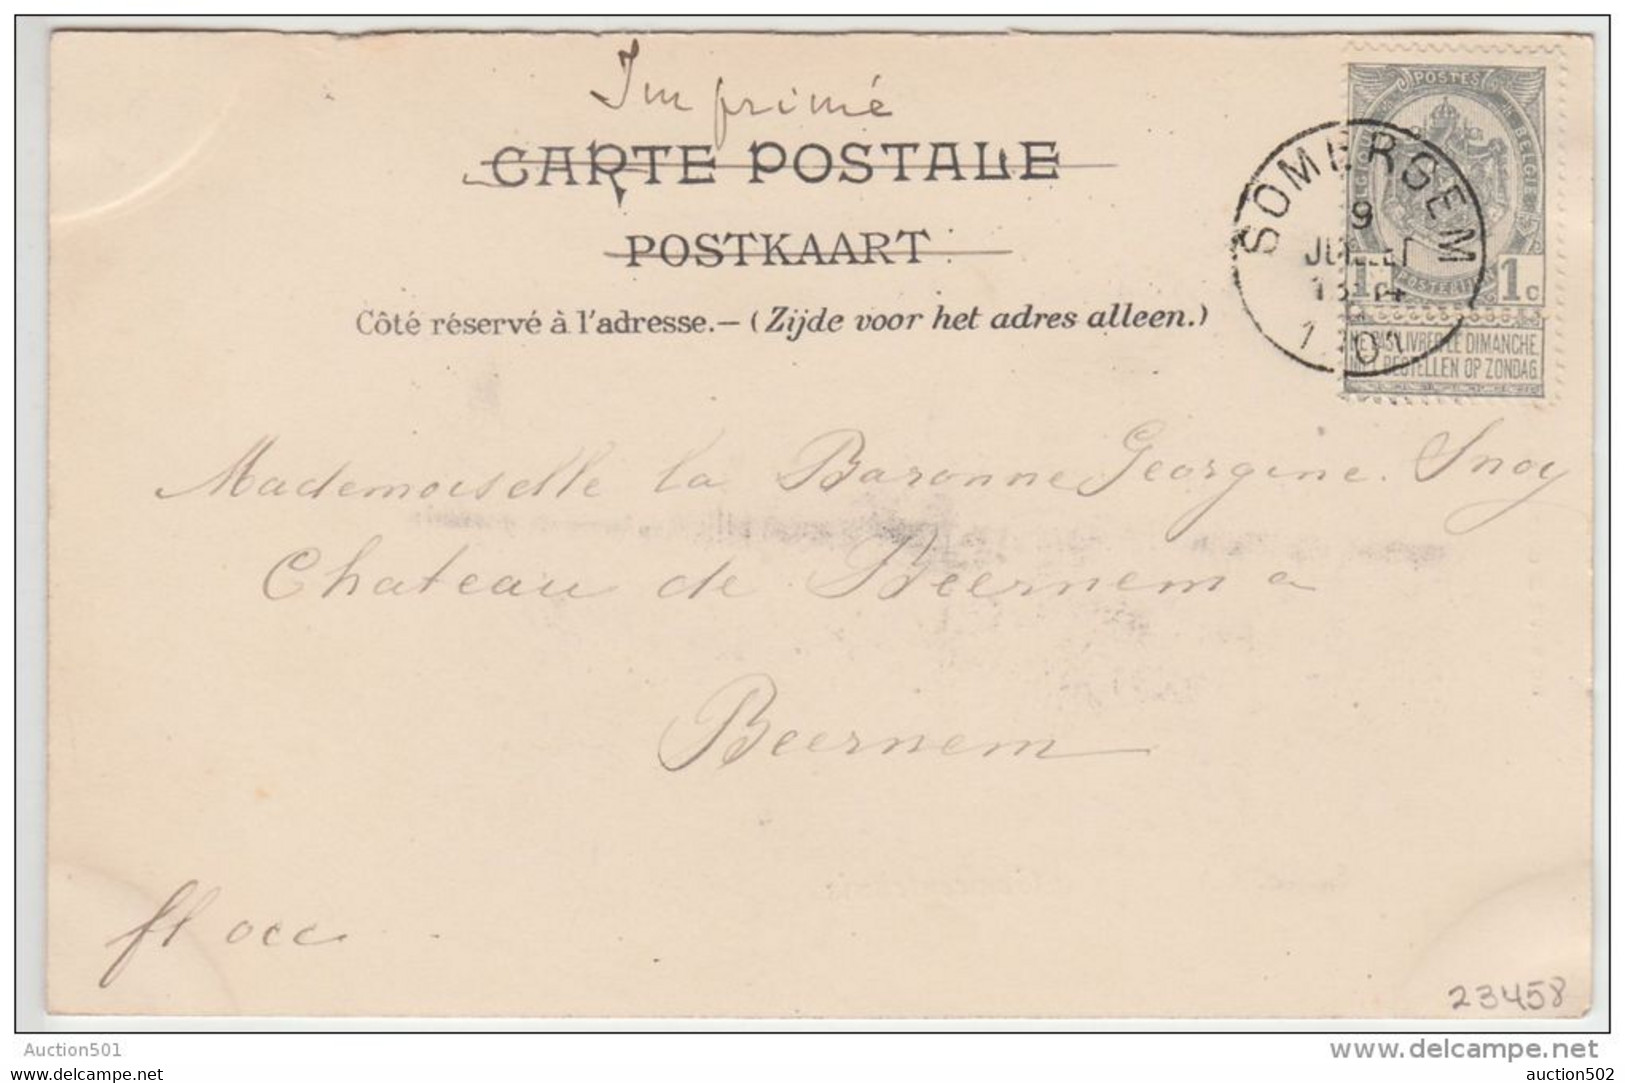 Imprimé
CARTE POSTALE
POSTKAART
Côté réservé à l'adresse.— (Zijde voor het adres alleen.)
POSTES
SOMERGEM
9
JUILLET
1c
NE PAS LIVRER LE DIMANCHE
NIET BESTELLEN OP ZONDAG
Mademoiselle la Baronne Georgine. Snoy
Chateau de Beernem a
Beernem
fl occ
23458
Auction501
www.delcampe.net
auction502
auction502